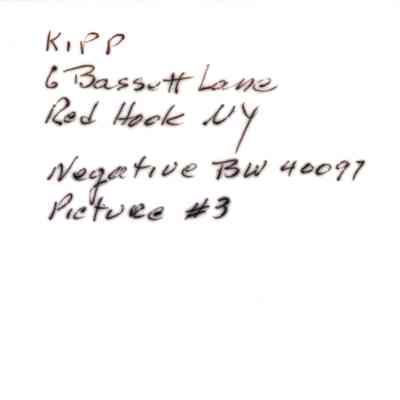 KIPP
6 Bassett Lane
Red Hook NY
Negative BW 40097
Picture #3